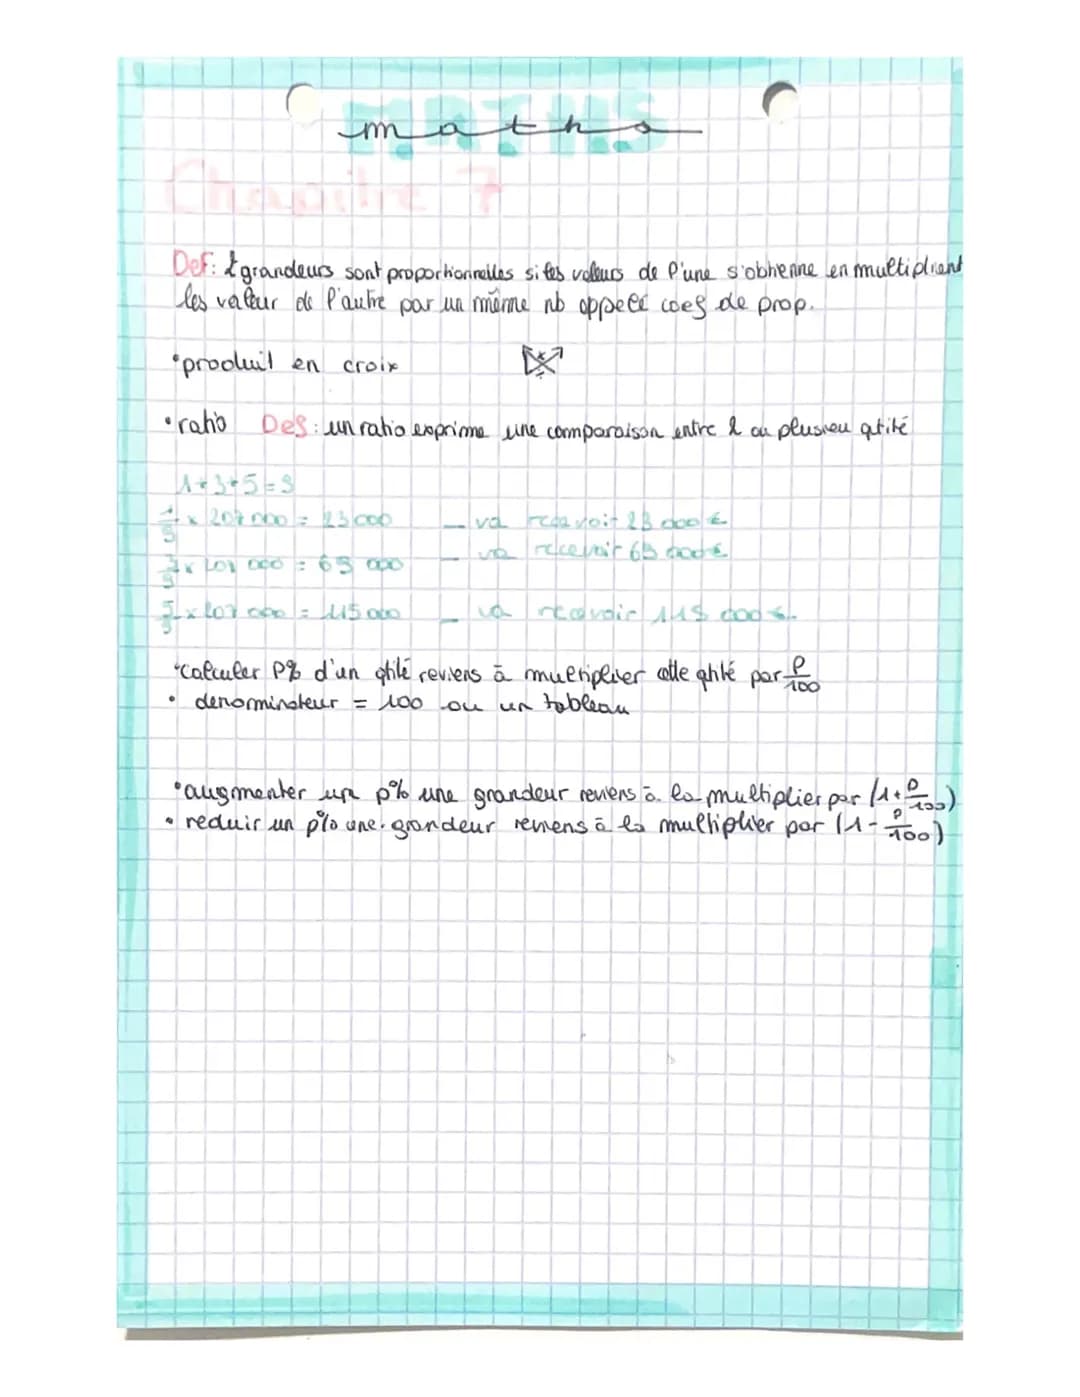 MATHS
maths
Chapitre 7
Def: 2 grandeurs sont proportionnelles si les valeurs de l'une s'obtienne en multipliant
les valeur de l'autre par un même nb appelé coef de prop.
•produit en croix
•ratio Def: un ratio exprime une comparaison entre 2 ou plusieu qtité
1+3+5=9
1/9 x 207 000 = 23 000 — va recevoir 23 000 €
3/9 x 207 000 = 69 000 — va recevoir 69 000 €
5/9 x 207 000 = 115 000 — va recevoir 115 000 €.
•calculer P% d'un qtité reviens à multiplier cette qtité par P/100
• denominateur = 100 ou un tableau
•augmenter un p% une grandeur reviens à la multiplier par (1+P/100)
• reduir un p% une grandeur reviens à la multiplier par (1-P/100)